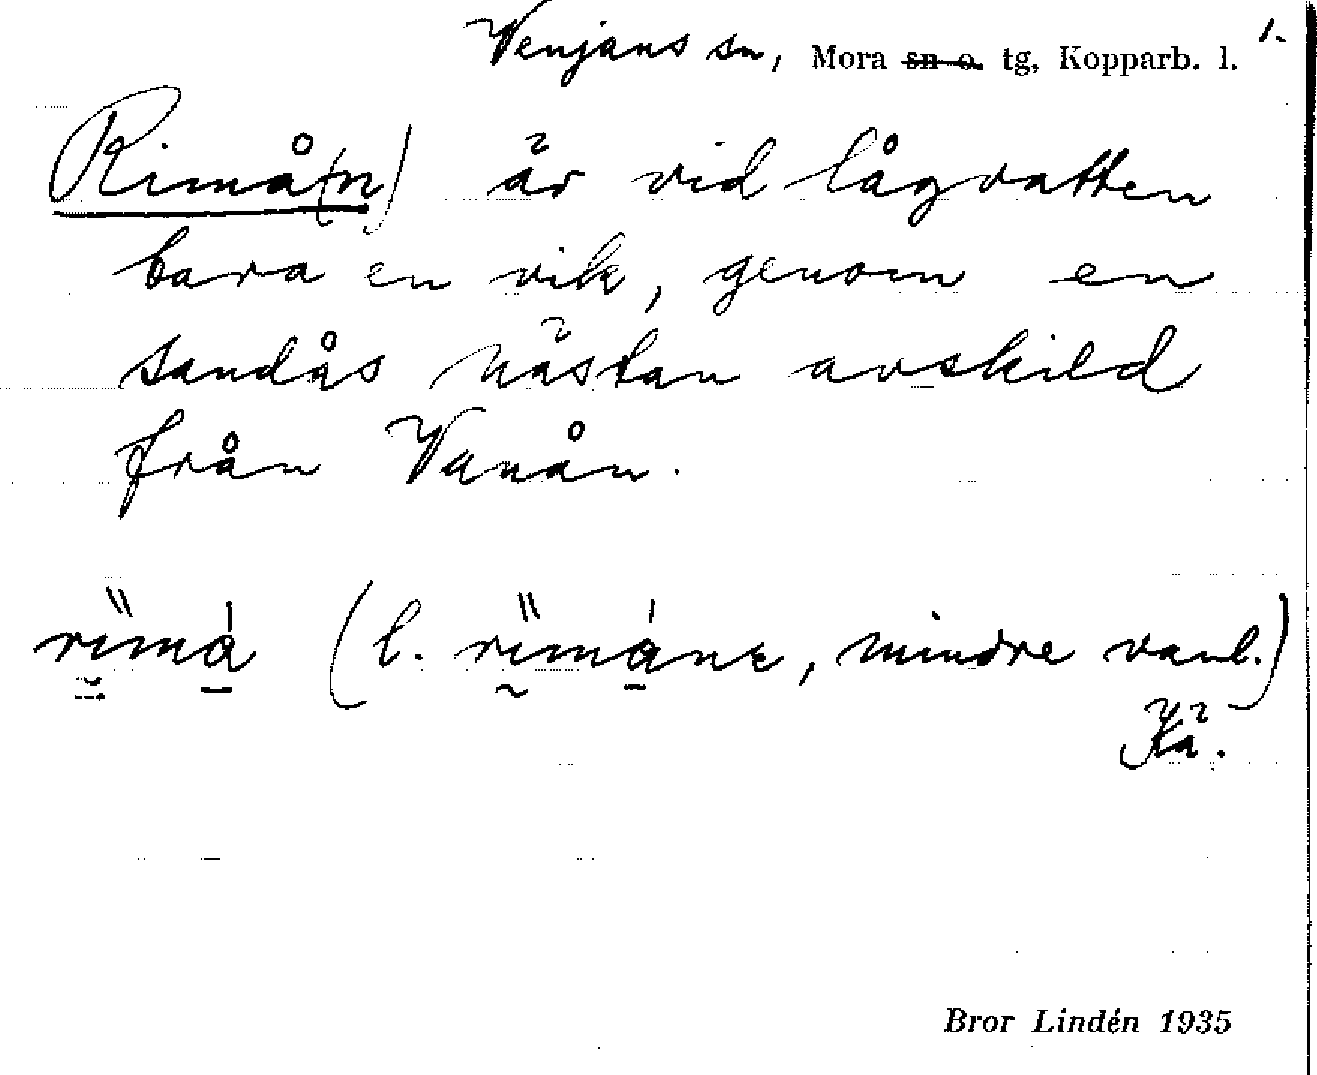 Venjans sn, Mora sn o. tg, Kopparb. l. 1.
Rimå(n) är vid lågvatten
bara en vik, genom en
sandås nästan avskild
från Vanån.
rima (l. rimane, mindre vanl.)
Kä.
Bror Lindén 1935